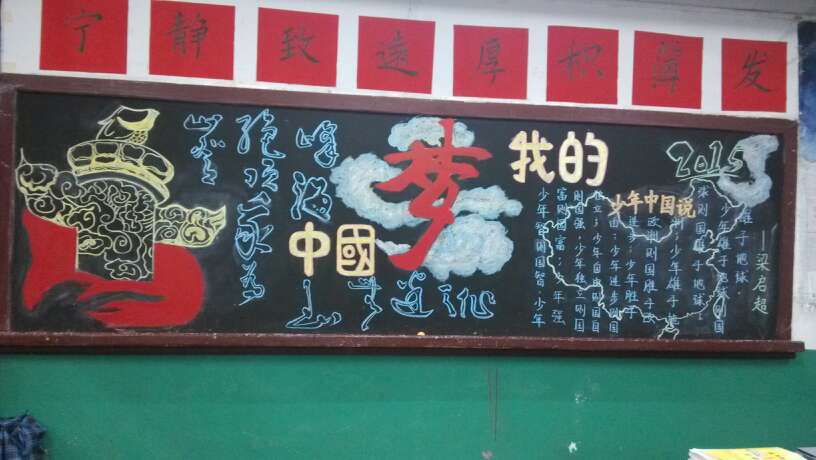 宁静致遠厚积薄发
我的
中國
梦
2015
绝顶我为
峰
少年中国说
少年智则国智，少年
富则国富；少年强
则国强，少年独立则国
独立；少年自由则国
由；少年进步则国
进步；少年胜于
欧洲则国胜于欧
洲，少年雄于地
球则国雄于地球
少年雄于地球则国
雄于地球。
——梁启超